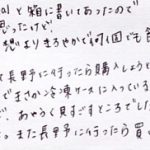 alと箱に書いてあったので
思ったけど!
想よりまろやかで何個でも食
長野に行ったら購入しよう
でまさか冷凍ケースに入っている
で、あやうく見すごすところでした
、また長野に行ったら買い